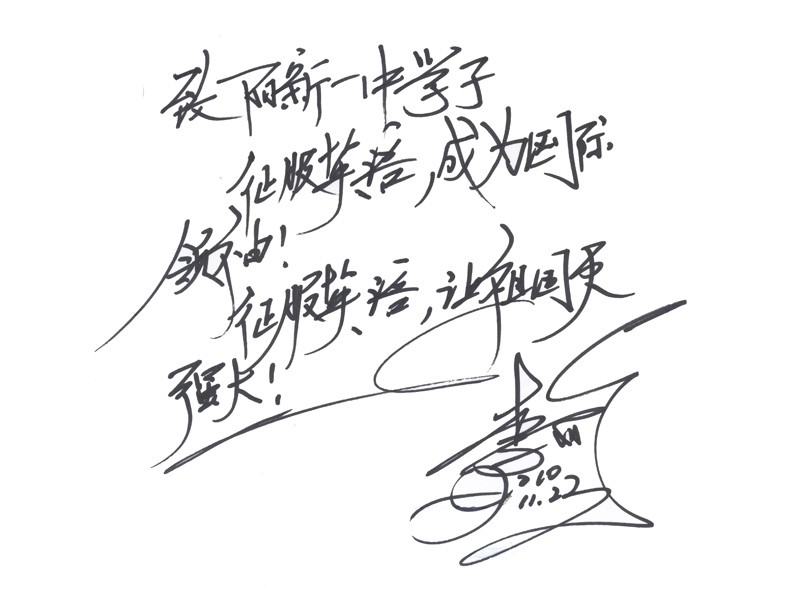 致丽新一中学子
征服英语,成为国际
领袖!
征服英语,让祖国更
强大!
2010
11.22